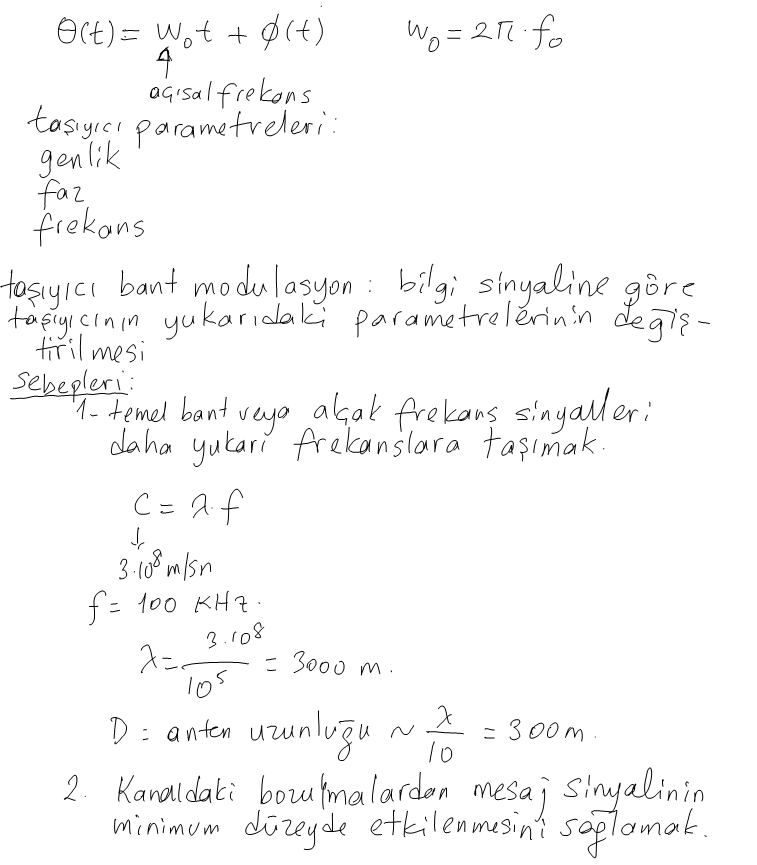 θ(t) = w₀t + ϕ(t)    w₀ = 2π · f₀
açısal frekans
taşıyıcı parametreleri:
genlik
faz
frekans
taşıyıcı bant modulasyon : bilgi sinyaline göre
taşıyıcının yukarıdaki parametrelerinin değiş-
tirilmesi
sebepleri:
1- temel bant veya alçak frekans sinyalleri
daha yukarı frekanslara taşımak.
C = λ.f
↓
3.10⁸ m/sn
f = 100 KHz.
λ = 3.10⁸ / 10⁵ = 3000 m.
D = anten uzunluğu ~ λ/10 = 300 m.
2. Kanaldaki bozulmalardan mesaj sinyalinin
minimum düzeyde etkilenmesini sağlamak.